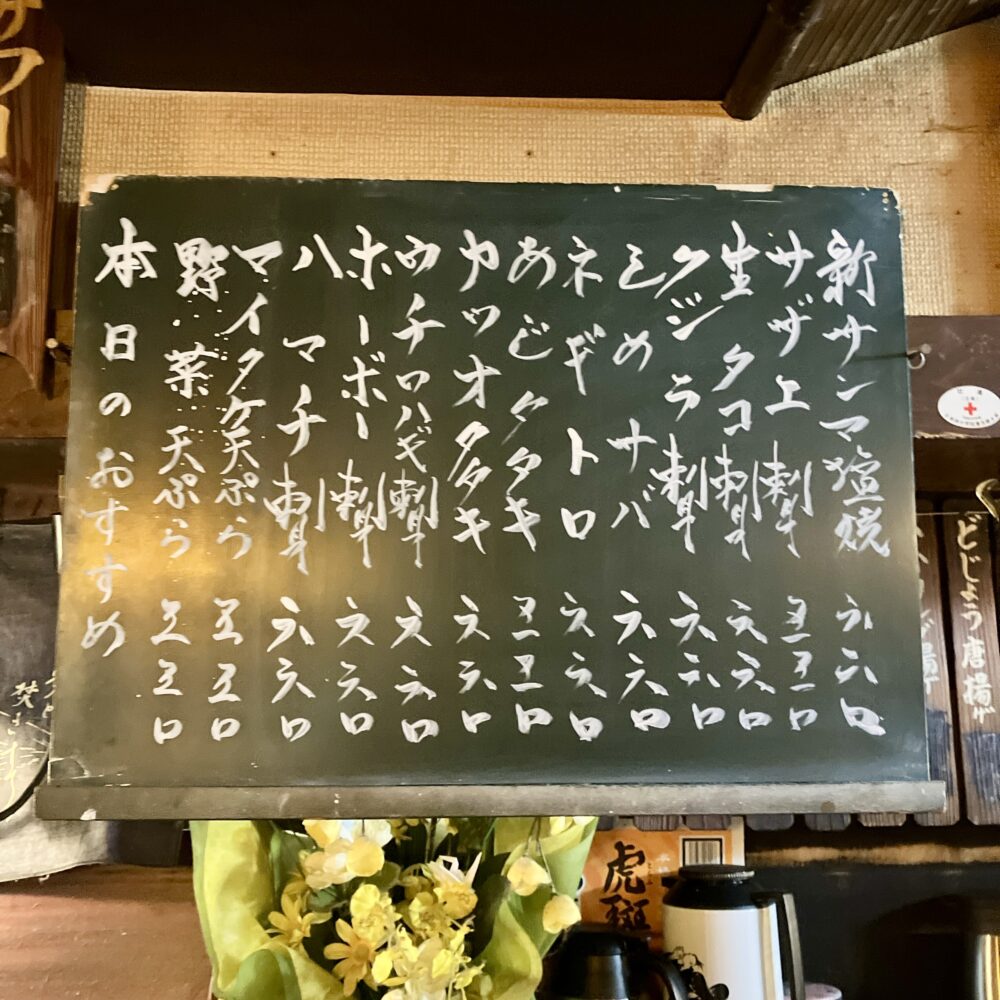 新サンマ塩焼 六六〇
サザエ刺 五五〇
生タコ刺 六六〇
クジラ刺 六六〇
しめサバ 六六〇
ネギトロ 六六〇
あじタタキ 五五〇
カツオタタキ 六六〇
ウチワハギ刺 六六〇
ホーボー刺 六六〇
ハマチ刺 六六〇
マイタケ天ぷら 五五〇
野菜天ぷら 五五〇
本日のおすすめ
どじょう唐揚げ
虎斑